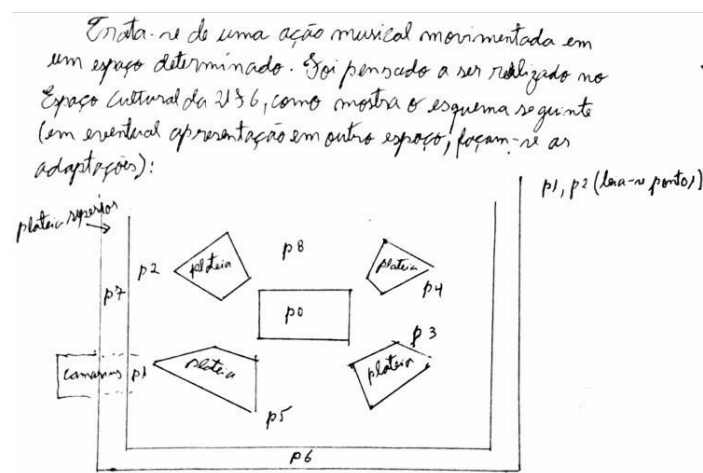 Trata-se de uma ação musical movimentada em
um espaço determinado. Foi pensado a ser realizado no
Espaço Cultural da UFG, como mostra o esquema seguinte
(em eventual apresentação em outro espaço, façam-se as
adaptações):
p1, p2 (leia-se ponto)
plateia superior
p2
plateia
p8
plateia
p4
p7
p0
p3
camarins p1
plateia
plateia
p5
p6